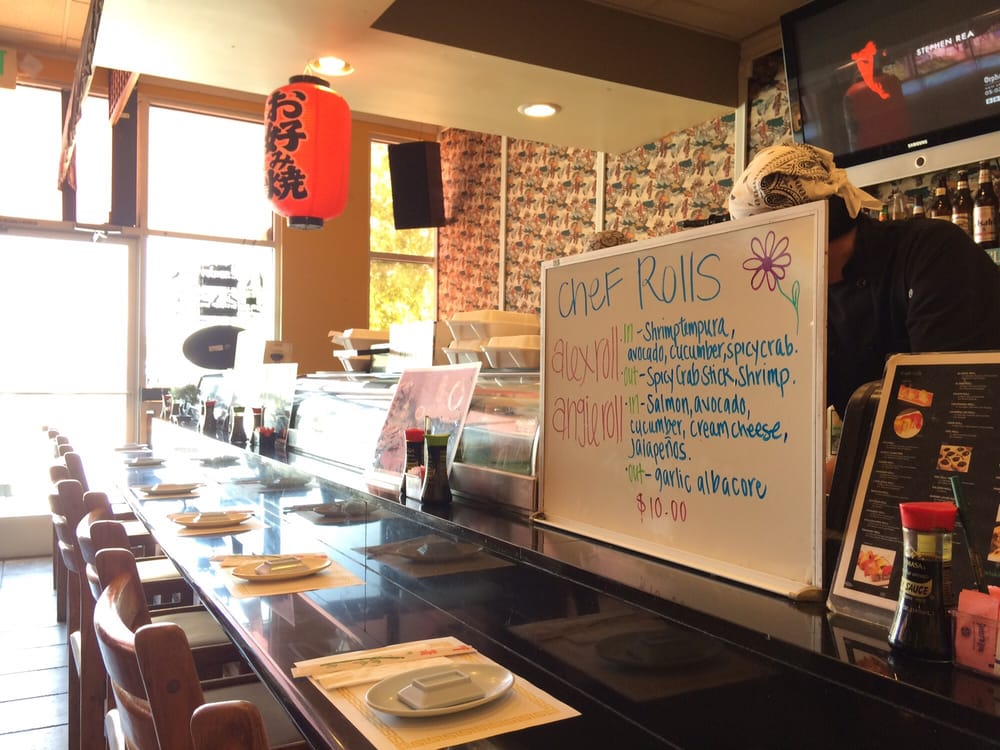 お好み焼
STEPHEN REA
SAMSUNG
chef Rolls
alex roll
in - Shrimp tempura,
avocado, cucumber, spicy crab.
out - Spicy Crab Stick, Shrimp.
angie roll
• in - Salmon, avocado,
cucumber, cream cheese,
Jalapeños.
• out - garlic albacore
$10.00
SAUCE